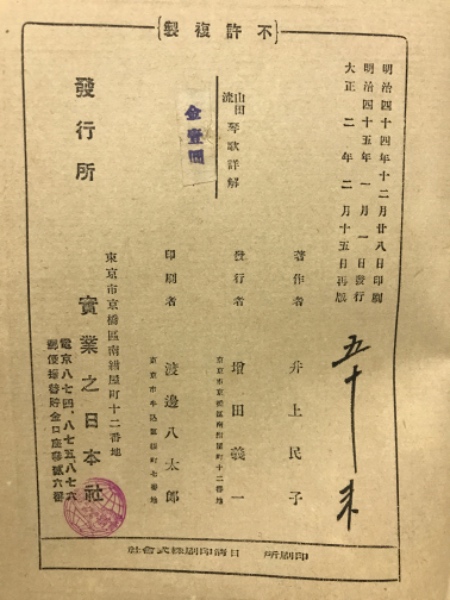 不許複製
明治四十四年十二月廿八日印刷
明治四十五年一月一日發行
大正二年二月十五日再版
山田流 琴歌詳解
金壹圓
著作者 井上民子
發行者 增田義一
東京市京橋區南紺屋町十二番地
印刷者 渡邊八太郎
東京市牛込區榎町七番地
發行所
東京市京橋區南紺屋町十二番地
實業之日本社
電京八七四、八七五、八七六
郵便振替貯金口座參貳六番
印刷所 日淸印刷株式會社